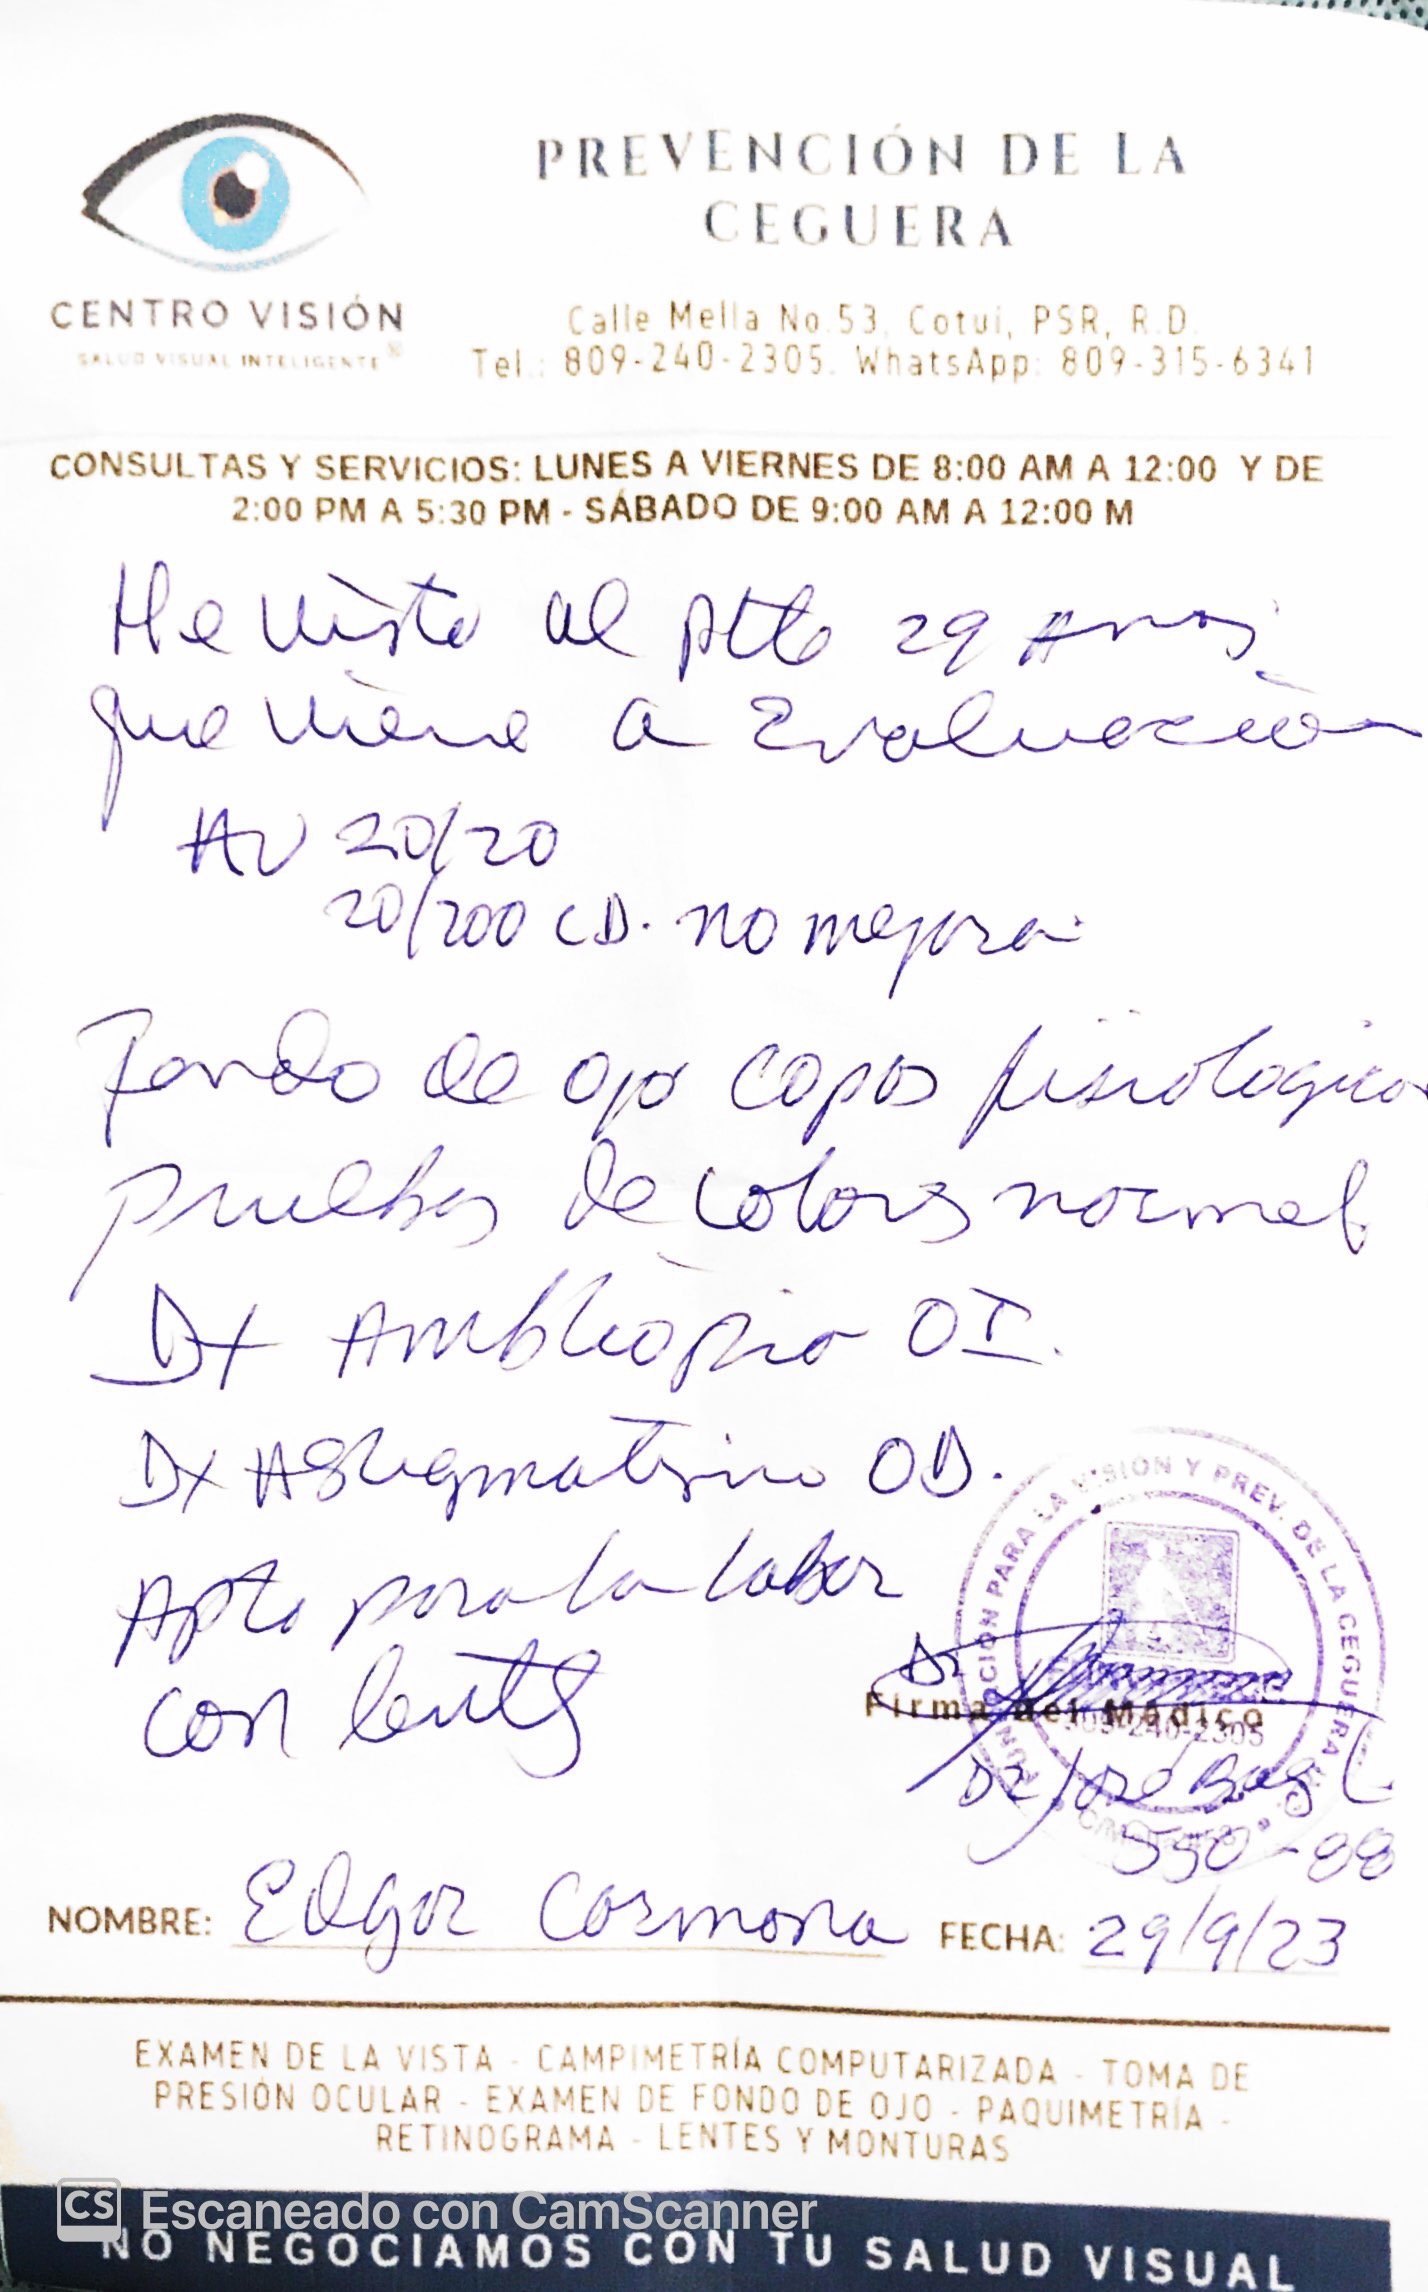 PREVENCIÓN DE LA
CEGUERA
CENTRO VISIÓN
SALUD VISUAL INTELIGENTE®
Calle Mella No.53, Cotuí, PSR, R.D.
Tel.: 809-240-2305. WhatsApp: 809-315-6341
CONSULTAS Y SERVICIOS: LUNES A VIERNES DE 8:00 AM A 12:00 Y DE
2:00 PM A 5:30 PM - SÁBADO DE 9:00 AM A 12:00 M
He visto al 29 Anos
que viene a Evaluación
AV 20/20
20/200 no mejora.
Fondo de ojo copas fisiologicas
pruebas de colores normal
Dx Ambliopia OI.
Dx Astigmatismo OD.
Apto para la labor
con lentes
CIÓN PARA LA VISIÓN Y PREV. DE LA CEGUERA
Dr
Firma del Médico
809-240-2305
Dr José
550-88
NOMBRE: Edgar Carmona FECHA: 29/9/23
EXAMEN DE LA VISTA - CAMPIMETRÍA COMPUTARIZADA - TOMA DE
PRESIÓN OCULAR - EXAMEN DE FONDO DE OJO - PAQUIMETRÍA -
RETINOGRAMA - LENTES Y MONTURAS
CS Escaneado con CamScanner
NO NEGOCIAMOS CON TU SALUD VISUAL